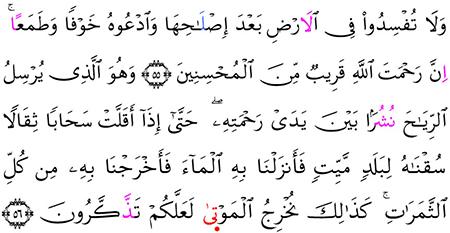 وَلَا تُفْسِدُوا۟ فِي اِ۬لَارْضِ بَعْدَ إِصْلَٰحِهَا وَادْعُوهُ خَوْفٗا وَطَمَعًاۚ
اِنَّ رَحْمَتَ اَ۬للَّهِ قَرِيبٞ مِّنَ اَ۬لْمُحْسِنِينَ ۝٥٥ وَهُوَ اَ۬لَّذِے يُرْسِلُ
اُ۬لرِّيَٰحَ نُشُرَۢا بَيْنَ يَدَےْ رَحْمَتِهِۦۖ حَتَّىٰٓ إِذَآ أَقَلَّتْ سَحَابٗا ثِقَالٗا
سُقْنَٰهُ لِبَلَدٖ مَّيِّتٖ فَأَنزَلْنَا بِهِ اِ۬لْمَآءَ فَأَخْرَجْنَا بِهِۦ مِن كُلِّ
اِ۬لثَّمَرَٰتِۚ كَذَٰلِكَ نُخْرِجُ اُ۬لْمَوْت۪ىٰ لَعَلَّكُمْ تَذَّكَّرُونَ ۝٥٦